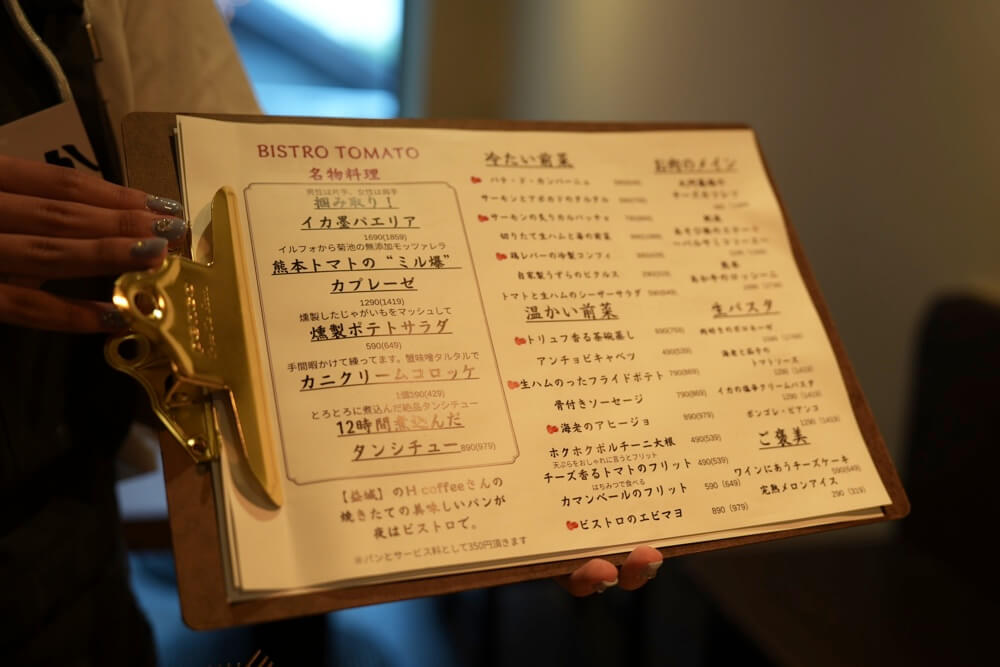 BISTRO TOMATO
名物料理
男性は片手、女性は両手
掴み取り！
イカ墨パエリア
1690(1859)
イルフォから菊池の無添加モッツァレラ
熊本トマトの“ミル爆”
カプレーゼ
1290(1419)
燻製したじゃがいもをマッシュして
燻製ポテトサラダ
590(649)
手間暇かけて練ってます。蟹味噌タルタルで
カニクリームコロッケ
1個390(429)
とろとろに煮込んだ絶品タンシチュー
12時間煮込んだ
タンシチュー 890(979)
【益城】のH coffeeさんの
焼きたての美味しいパンが
夜はビストロで。
※パンとサービス料として350円頂きます
冷たい前菜
パテ・ド・カンパーニュ
サーモンとアボカドのタルタル
サーモンの炙りカルパッチョ
切りたて生ハムと苺の前菜
鶏レバーの冷製コンフィ
自家製うずらのピクルス
トマトと生ハムのシーザーサラダ 590(649)
温かい前菜
トリュフ香る茶碗蒸し 690(759)
アンチョビキャベツ 490(539)
生ハムのったフライドポテト 790(869)
骨付きソーセージ 790(869)
海老のアヒージョ 890(979)
ホクホクポルチーニ大根 490(539)
天ぷらをおしゃれに言うとフリット
チーズ香るトマトのフリット 490(539)
はちみつで食べる
カマンベールのフリット 590 (649)
ビストロのエビマヨ 890 (979)
お肉のメイン
生パスタ
海老と茄子の
トマトソース
1290 (1419)
イカの塩辛クリームパスタ
1290 (1419)
ボンゴレ・ビアンコ
1290 (1419)
ご褒美
ワインにあうチーズケーキ
590(649)
完熟メロンアイス
290 (319)